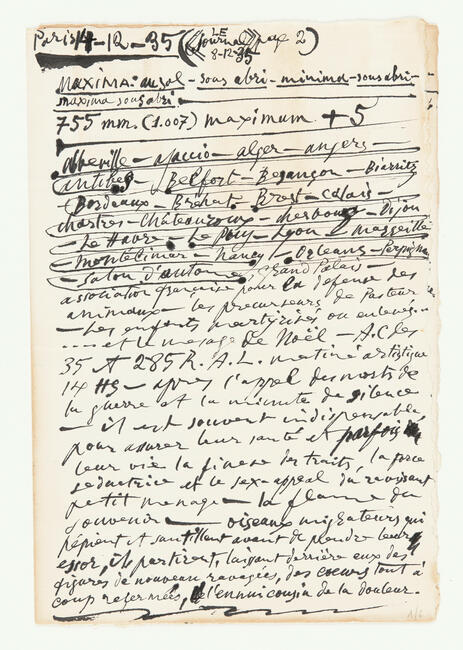 Paris 4-12-35 (LE Journal page 2) 8-12-35
MAXIMA: au sol - sous abri - minima - sous abri -
maxima sous abri
755 mm. (1.007) maximum + 5
abbeville - ajaccio - alger - angers -
antibes - Belfort - Besançon - Biarritz
Bordeaux - Brest - Calais -
chartres - Châteauroux - cherbourg - Dijon
- Le Havre - Le Puy - Lyon - Marseille
Montélimar - nancy - Orleans - Perpignan
- Salon d'automne, Grand Palais -
association française pour la défense des
animaux - les precurseurs de Pasteur
- Les enfants martyrisés ou enlevés...
..... et le message de Noël - A.C les
35 et 285 R.A.L. matinée artistique
14 Hs - après l'appel des morts de
la guerre et la minute de silence
- il est souvent indispensable,
pour assurer leur santé et parfois
leur vie la finesse des traits, la force
seductrice et le sex-appeal du ravissant
petit menage - la flamme du
souvenir - oiseaux migrateurs qui
pépient et sautillent avant de prendre leur
essor, ils partiront, laissant derrière eux des
figures de nouveau ravagées, des coeurs tout à
coup refermés, et l'ennui cousin de la douleur.